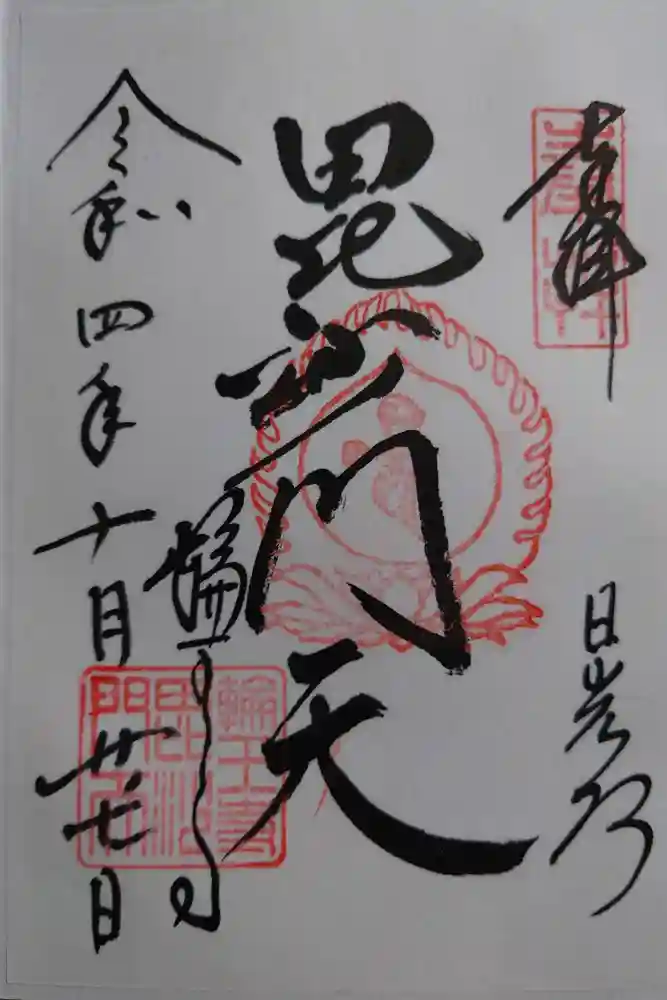 奉拝
日光山
毘沙門天
輪王寺
令和四年十月廿七日